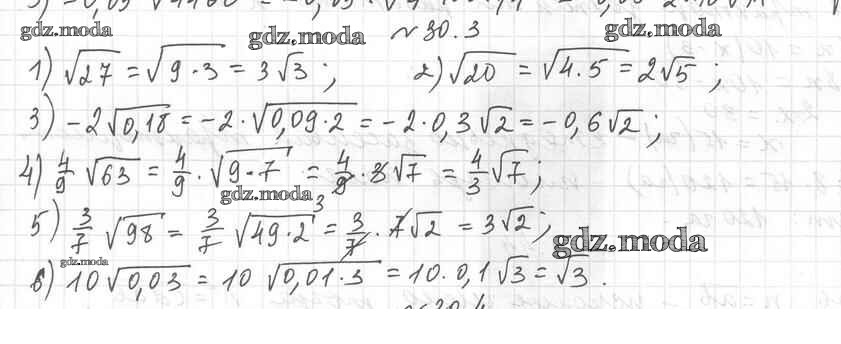 gdz.moda gdz.moda №30.3 gdz.moda
1) √27 = √9·3 = 3√3; 2) √20 = √4.5 = 2√5;
3) -2√0,18 = -2·√0,09·2 = -2·0,3√2 = -0,6√2;
4) 4/9 √63 = 4/9 · √9·7 = 4/9 · 3√7 = 4/3 √7;
gdz.moda 3
5) 3/7 √98 = 3/7 √49·2 = 3/7 · 7√2 = 3√2;
gdz.moda
gdz.moda
6) 10√0,03 = 10 √0,01·3 = 10.0,1√3 = √3.